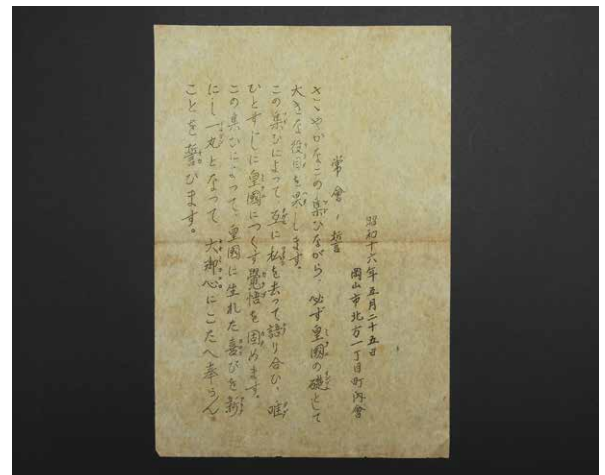 昭和十六年五月二十五日
岡山市北方一丁目町内會
常會ノ誓
さゝやかなこの集ひながら、必ず皇國の礎として
大きな役目を果します。
この集ひによつて、互に私を去つて語り合ひ、唯
ひとすじに皇國につくす覺悟を固めます。
この集ひによつて、皇國に生れた喜びを新
にし一丸となつて、大御心にこたへ奉らん
ことを誓ひます。